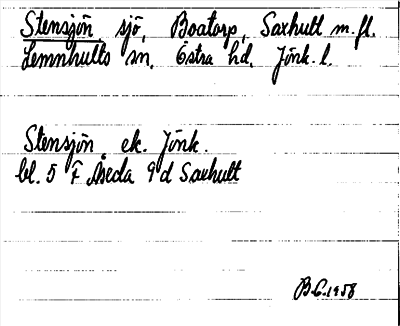 Stensjön sjö, Boatorp, Saxhult m.fl.
Lemnhults sn. Östra hd. Jönk. l.
Stensjön ek. Jönk.
bl. 5 F Åseda 9 d Saxhult
B.C. 1958